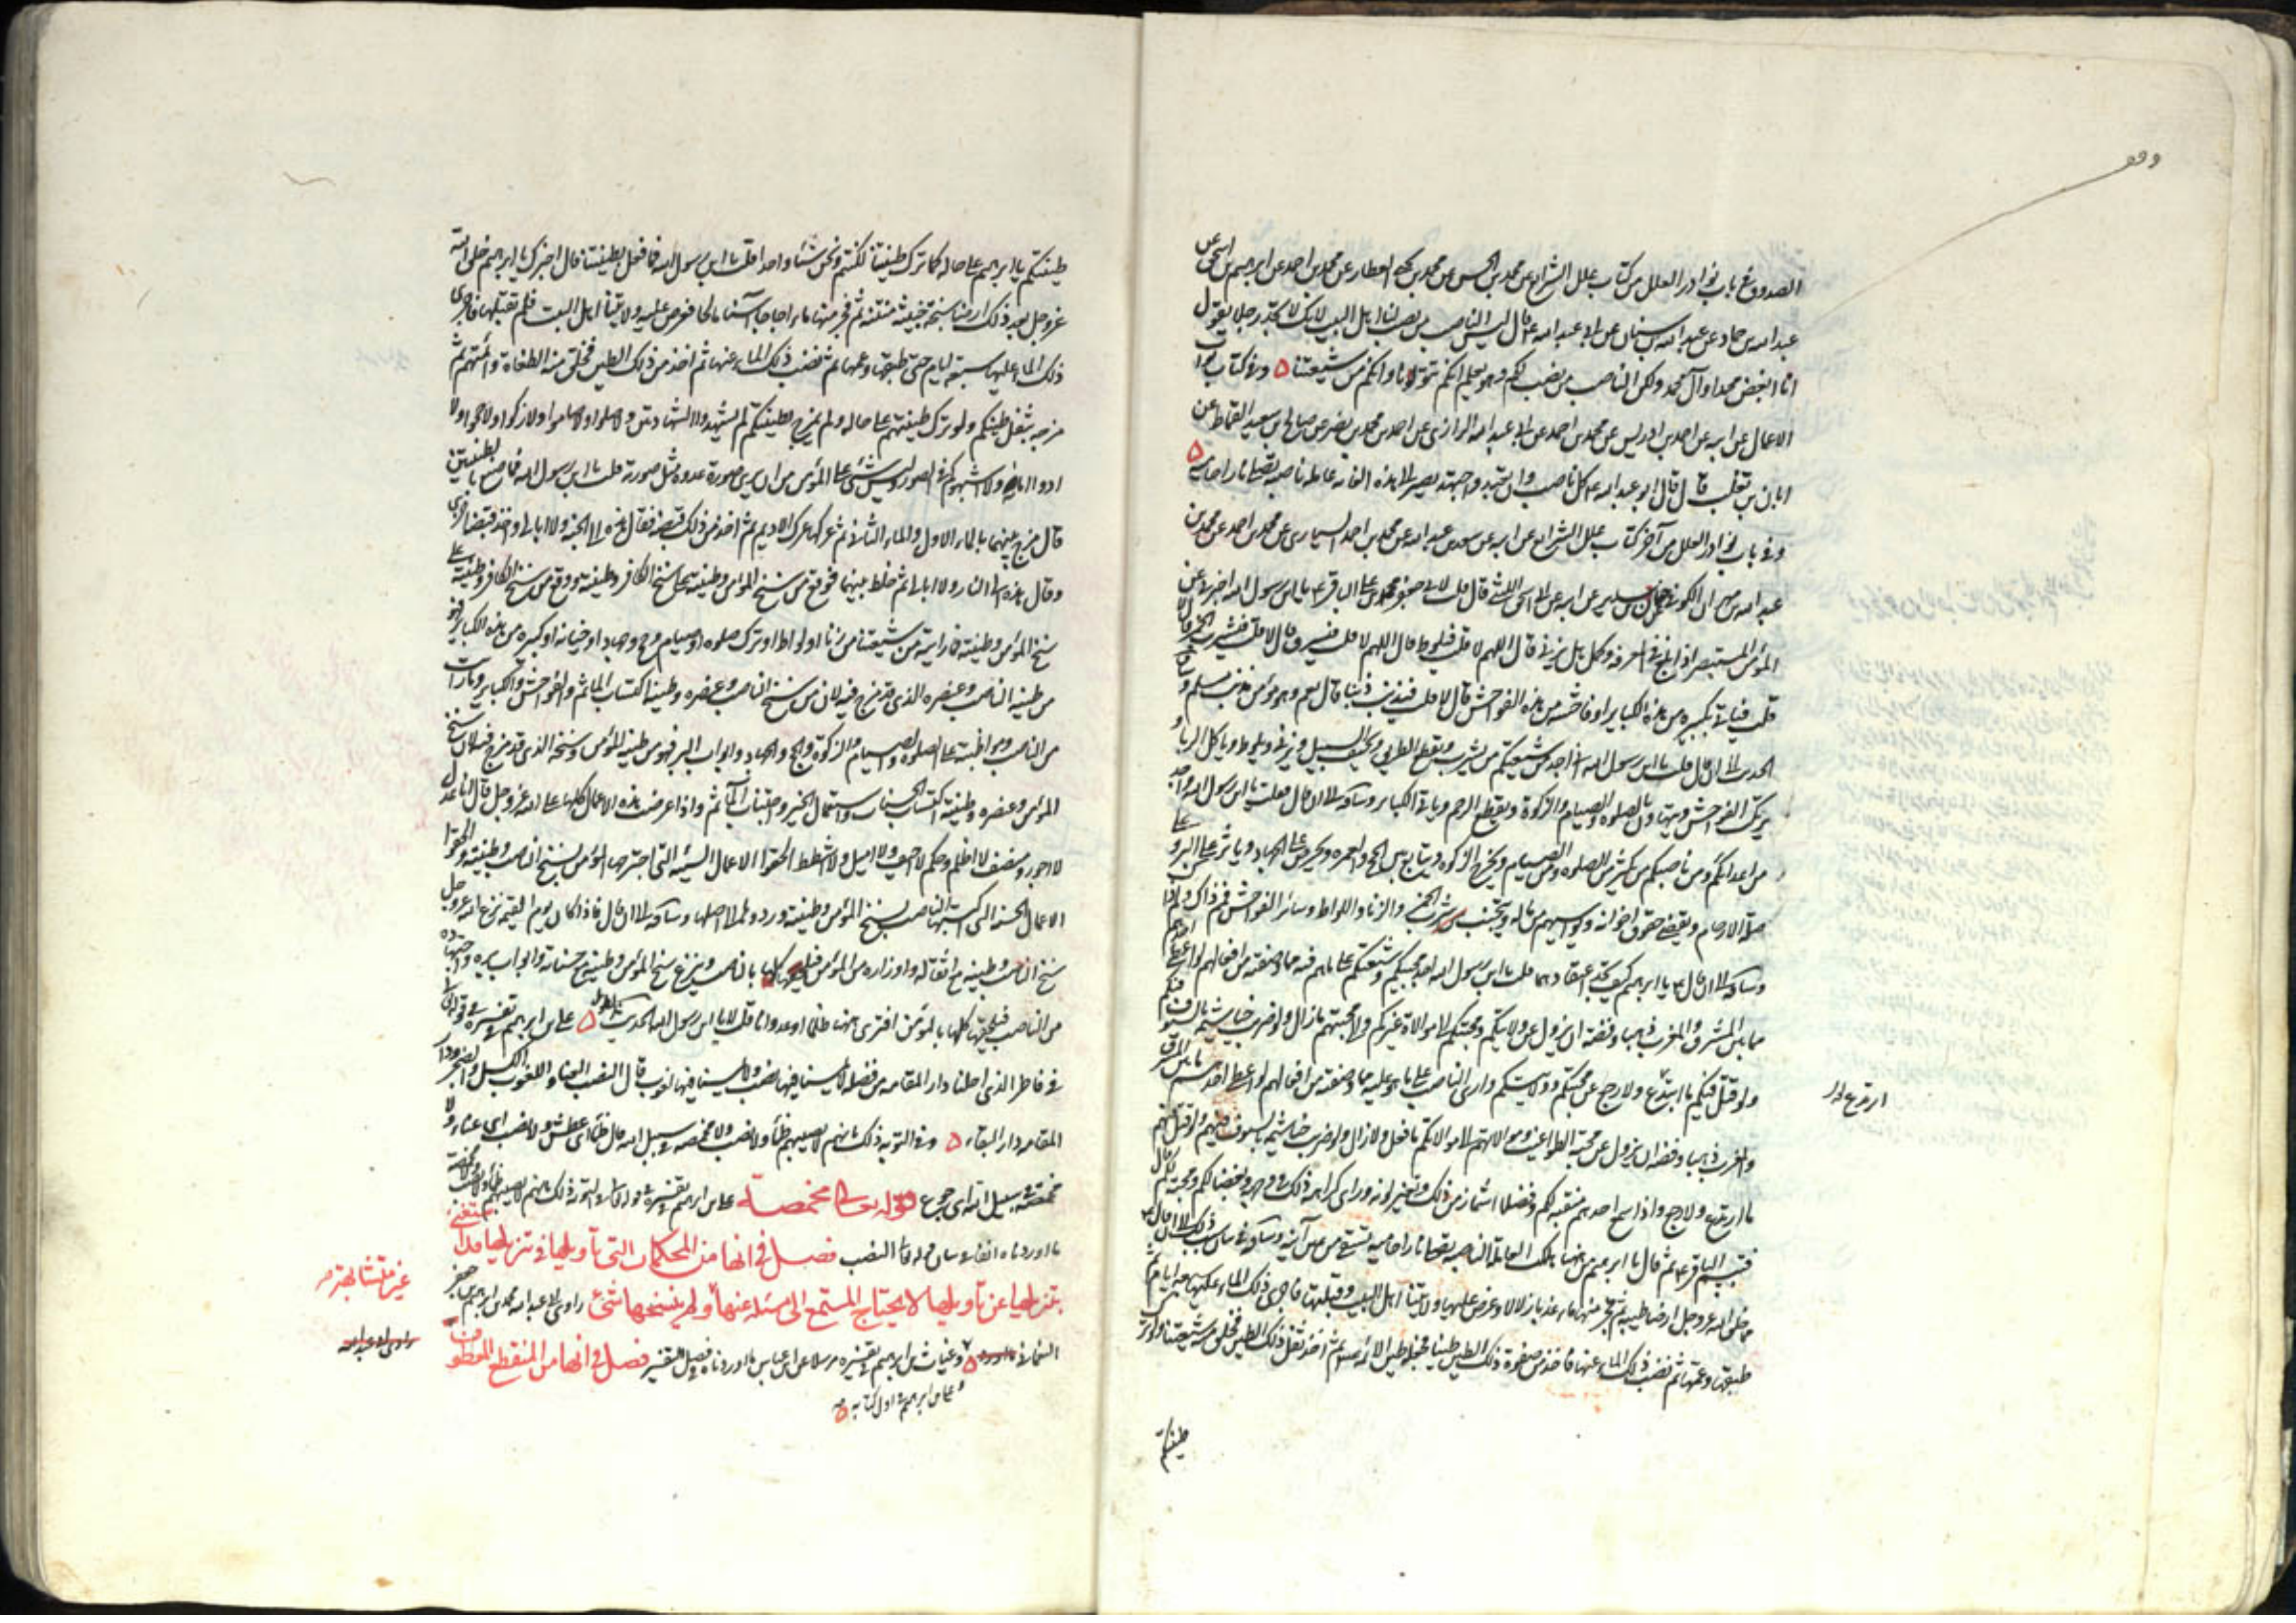 الصدوق فى باب نوادر العلل من كتاب علل الشرائع عن محمد بن الحسن عن محمد بن يحيى العطار عن محمد بن احمد عن ابرهيم بن اسحق عن
عبد الله بن حماد عن عبد الله بن سنان عن ابى عبد الله ع قال ليس الناصب من نصب لنا اهل البيت لانك لا تجد رجل يقول
انا ابغض محمدا وآل محمد ولكن الناصب من نصب لكم وهو يعلم انكم تتولونا وانكم من شيعتنا ۵ وفى كتاب
الاعمال عن ابيه عن احمد بن ادريس عن محمد بن احمد عن ابى عبد الله الرازى عن احمد بن محمد بن نصر عن صالح بن سعيد القماط عن
ابان بن تغلب قال قال ابو عبد الله ع كل ناصب وان تعبد واجتهد يصير الى هذه الغايه عاملة ناصبة تصلى نارا حامية ۵
وفى باب نوادر العلل من آخر كتاب علل الشرائع عن ابيه عن سعد بن عبد الله عن محمد بن احمد السيارى عن محمد بن
عبد الله بن مهران الكوفى عن حنان بن سدير عن ابيه عن ابى اسحق الليثى قال قلت لابى جعفر محمد بن على الباقر ع يا ابن رسول الله اخبرنى عن
المؤمن المستبصر اذا بلغ فى المعرفه وكمل هل يزنى قال اللهم لا قلت فيلوط قال اللهم لا قلت فيسرق قال لا قلت فيشرب الخمر قال لا
قلت فياتى بكبيره من هذه الكباير او فاحشه من هذه الفواحش قال لا قلت فيذنب ذنبا قال نعم وهو مؤمن مذنب مسلم
الحديث الى ان قال قلت يا ابن رسول الله انى اجد من شيعتكم من يشرب ويقطع الطريق ويخيف السبيل ويزنى ويلوط وياكل الربا و
يرتكب الفواحش ويتهاون بالصلوة والصيام والزكوة ويقطع الرحم وياتى الكباير وساقه الى ان قال فقلت يا ابن رسول الله واجد
من اعدائكم ومن ناصبكم من يكثر من الصلوة ومن الصيام ويخرج الزكوة ويتابع بين الحج والعمره ويحرص على الجهاد وياثر على البر و
صلة الارحام ويقضى حقوق اخوانه ويواسيهم من ماله ويتجنب شرب الخمر والزنا واللواط وسائر الفواحش فمم ذاك ولم
وساقه الى ان قال ع يا ابرهيم كيف تجد اعتقادهما قلت يا ابن رسول الله اجد محبيكم وشيعتكم على ما هم فيه مما وصفته من افعالهم لو اعطى احدهم
ما بين المشرق والمغرب ذهبا وفضة ان يزول عن ولايتكم ومحبتكم الى موالاة غيركم والى محبتهم ما زال ولو ضرب خياشيمه بالسيوف فيكم
ولو قتل فيكم ما ارتدع ولا رجع عن محبتكم وولايتكم وارى الناصب على ما هو عليه مما وصفته من افعالهم لو اعطى احدهم ما بين المشرق
والمغرب ذهبا وفضه ان يزول عن محبة الطواغيت وموالاتهم الى موالاتكم ما فعل ولا زال ولو ضرب خياشيمه بالسيوف فيهم ولو قتل فيهم
ما ارتدع ولا رجع واذا سمع احدهم منقبة لكم وفضلا اشمأز من ذلك وتغير لونه ورأى كراهية ذلك فى وجهه وبغضا لكم ومحبة لهم قال
فتبسم الباقر ع ثم قال يا ابرهيم من هنا هلكت العاملة الناصبه تصلى نارا حامية تسقى من عين آنيه وساقه فى بيان سبب ذلك الى ان قال
مما خلق الله عز وجل ارضا طيبه ثم فجر منها ماء عذبا زلالا وعرض عليها ولايتنا اهل البيت فقبلتها فاجرى ذلك الماء عليها سبعة ايام
طبقها وعمها ثم نضب ذلك الماء عنها فاخذ من صفوة ذلك الطين طينا فجعله طين الائمه ع ثم اخذ ثفل ذلك الطين فخلق منه شيعتنا ولو ترك
طينتكم
طينتكم يا ابرهيم على حاله كما ترك طينتنا لكنتم ونحن شيئا واحدا قلت يا ابن رسول الله فما فعل بطينتنا قال اخبرك يا ابرهيم خلق الله
عز وجل بعد ذلك ارضا سبخة خبيثة منتنة ثم فجر منها ماء اجاجا آسنا مالحا فعرض عليه ولايتنا اهل البيت فلم تقبلها فاجرى
ذلك الماء عليها سبعة ايام حتى طبقها وعمها ثم نضب ذلك الماء عنها ثم اخذ من ذلك الطين فخلق منه الطغاة وائمتهم ثم
مزجه بثفل طينتكم ولو ترك طينتهم على حاله ولم يمزج بطينتكم لم يشهدوا الشهادتين ولا صلوا ولا صاموا ولا زكوا ولا حجوا ولا
ادوا امانة ولا اشبهوكم فى الصور وليس شئ على المؤمن من ان يرى صورة عدوه مثل صورته قلت يا ابن رسول الله فما صنع بالطينتين
قال مزج بينهما بالماء الاول والماء الثانى ثم عركها عرك الاديم ثم اخذ من ذلك قبضة فقال هذه الى الجنة ولا ابالى واخذ قبضة اخرى
وقال هذه الى النار ولا ابالى ثم خلط بينهما فوقع من سنخ المؤمن وطينته على سنخ الكافر وطينته ووقع من سنخ الكافر وطينته على
سنخ المؤمن وطينته فما رايته من شيعتنا من زنا او لواط او ترك صلوه او صيام او حج او جهاد او خيانه او كبيره من هذه الكباير فهو
من طينة الناصب وعنصره الذى قد مزج فيه لان من سنخ الناصب وعنصره وطينته اكتساب المآثم والفواحش والكباير وما رايت
من الناصب ومواظبته على الصلوة والصيام والزكوة والحج والجهاد وابواب البر فهو من طينة المؤمن وسنخه الذى قد مزج فيه لان سنخ
المؤمن وعنصره وطينته اكتساب الحسنات واستعمال الخير واجتناب المآثم واذا عرضت هذه الاعمال كلها على الله عز وجل قال انا عدل
لا اجور ومنصف لا اظلم وحكم لا احيف ولا اميل ولا اشطط الحقوا الاعمال السيئه التى اجترحها المؤمن بسنخ الناصب وطينته والحقوا
الاعمال الحسنه التى اكتسبها الناصب بسنخ المؤمن وطينته وردوها الى اصلها وساقه الى ان قال فاذا كان يوم القيمه نزع الله عز وجل
سنخ الناصب وطينته مع اثقاله واوزاره من المؤمن فيلحقها كلها بالناصب وينزع سنخ المؤمن وطينته مع حسناته وابواب بره واجتهاده
من الناصب فيلحقها كلها بالمؤمن افترى ههنا ظلما او عدوانا قلت لا يا ابن رسول الله الحديث بطوله ۵ على بن ابرهيم فى تفسيره فى قوله تعالى
فى فاطر الذى احلنا دار المقامه من فضله لا يمسنا فيها نصب ولا يمسنا فيها لغوب قال النصب العناء واللغوب الكسل والضجر ودار
المقامه دار البقاء ۵ وفى التوبه ذلك بانهم لا يصيبهم ظمأ ولا نصب ولا مخمصه فى سبيل الله قال ظمأ اى عطش ولا نصب اى عناء ولا
مخمصة فى سبيل الله اى جوع قوله تعالى مخمصة على بن ابرهيم فى تفسيره فى قوله تعالى فى التوبه ذلك بانهم لا يصيبهم ظمأ ولا نصب ولا مخمصة
ما اوردناه انفا فى بيان قوله تعالى النصب فصل فى انها من المحكمات التى تأويلها فى تنزيلها مستغنى
بتنزيلها عن تأويلها لا يحتاج المستمع الى مسئلة عنها ولم ينسخها شئ راوى ابى عبد الله محمد بن ابرهيم بن جعفر
النعمانى ۵ وغياث بن ابرهيم فى تفسيره مرسلا عن ابن عباس ما اوردناه فى فصل التفسير فصل فى انها من المنقطع المعطوف
وعلى بن ابرهيم فى اول كتابه ۵
غير متشابهة